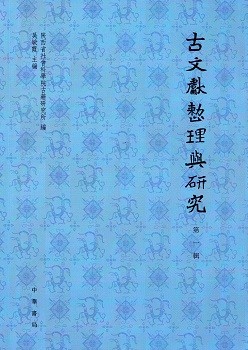 古文獻整理與研究
第一輯
陝西省社會科學院古籍研究所 編
吳敏霞 主編
中華書局